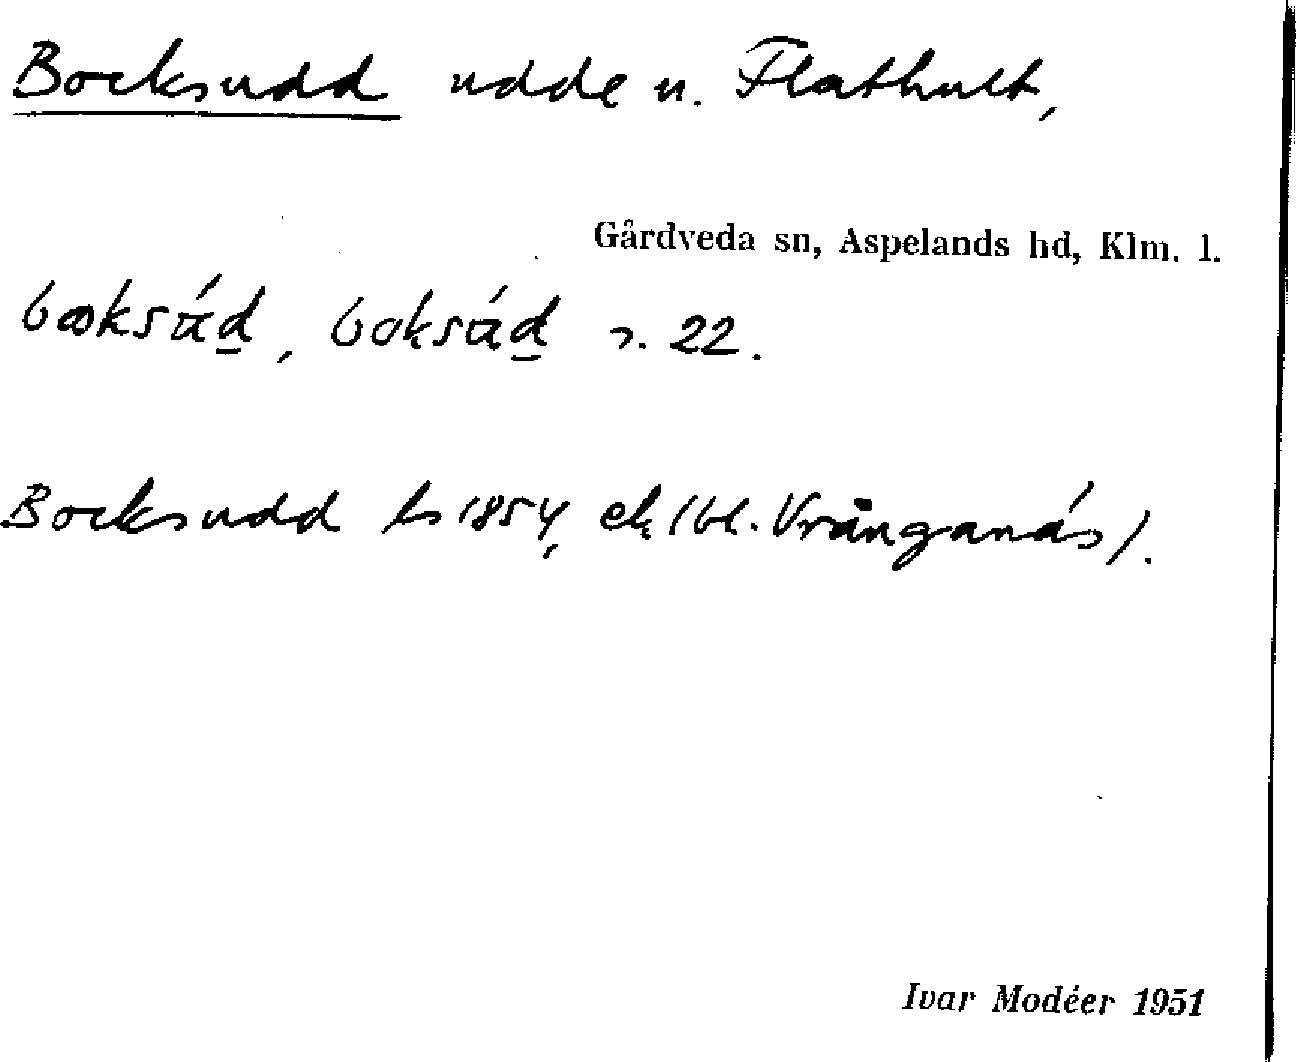 Bocksudd udde u. Flathult,
Gårdveda sn, Aspelands hd, Klm. l.
s. 22.
Bocksudd ls 1854, ek (bl. Vrånganäs).
Ivar Modéer 1951